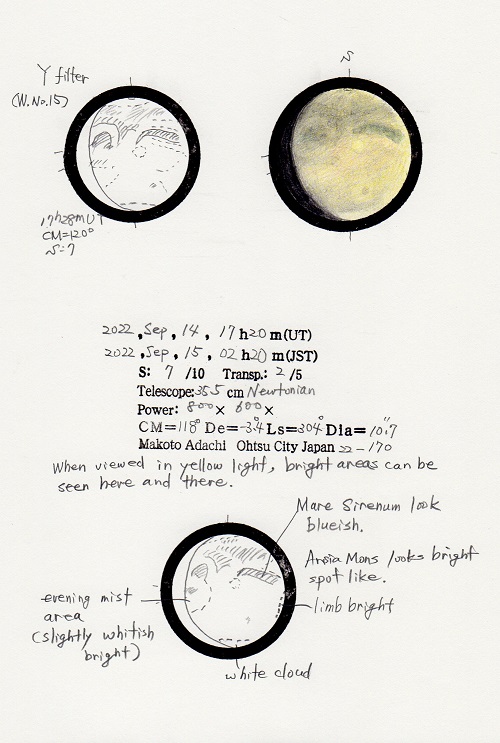 Y filter
(W.No.15)
S
17h28m UT
CM=120°
S=7
2022, Sep, 14, 17 h20 m(UT)
2022, Sep, 15, 02 h20 m(JST)
S: 7 /10 Transp.: 2 /5
Telescope: 35.5 cm Newtonian
Power: 800× 600×
CM=118° De=-3.4° Ls=304° Dia=10.″7
Makoto Adachi Ohtsu City Japan 22-170
When viewed in yellow light, bright areas can be
seen here and there.
Mare Sirenum look
blueish.
Arsia Mons looks bright
spot like.
limb bright
evening mist
area
(slightly whitish
bright)
white cloud